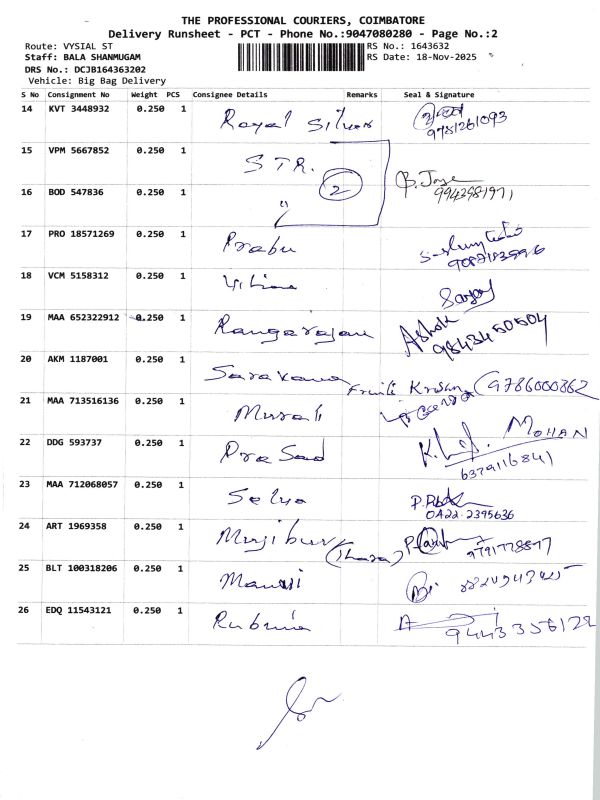 THE PROFESSIONAL COURIERS, COIMBATORE
Delivery Runsheet - PCT - Phone No.:9047080280 - Page No.:2
Route: VYSIAL ST RS No.: 1643632
Staff: BALA SHANMUGAM RS Date: 18-Nov-2025
DRS No.: DCJB164363202
Vehicle: Big Bag Delivery
S No Consignment No Weight PCS Consignee Details Remarks Seal & Signature
14 KVT 3448932 0.250 1 Royal Silver
9781261093
15 VPM 5667852 0.250 1 STR.
2
16 BOD 547836 0.250 1 "
9943981971
17 PRO 18571269 0.250 1 Prabu
18 VCM 5158312 0.250 1
19 MAA 652322912 0.250 1 Rangarajan Ashok
9843450504
20 AKM 1187001 0.250 1 Saravana 9786000862
21 MAA 713516136 0.250 1 Murali
22 DDG 593737 0.250 1 Prasad MOHAN
6379116841
23 MAA 712068057 0.250 1 Selva
0422-2395636
24 ART 1969358 0.250 1 Mujibur
25 BLT 100318206 0.250 1
26 EDQ 11543121 0.250 1 Rubina
9443356122